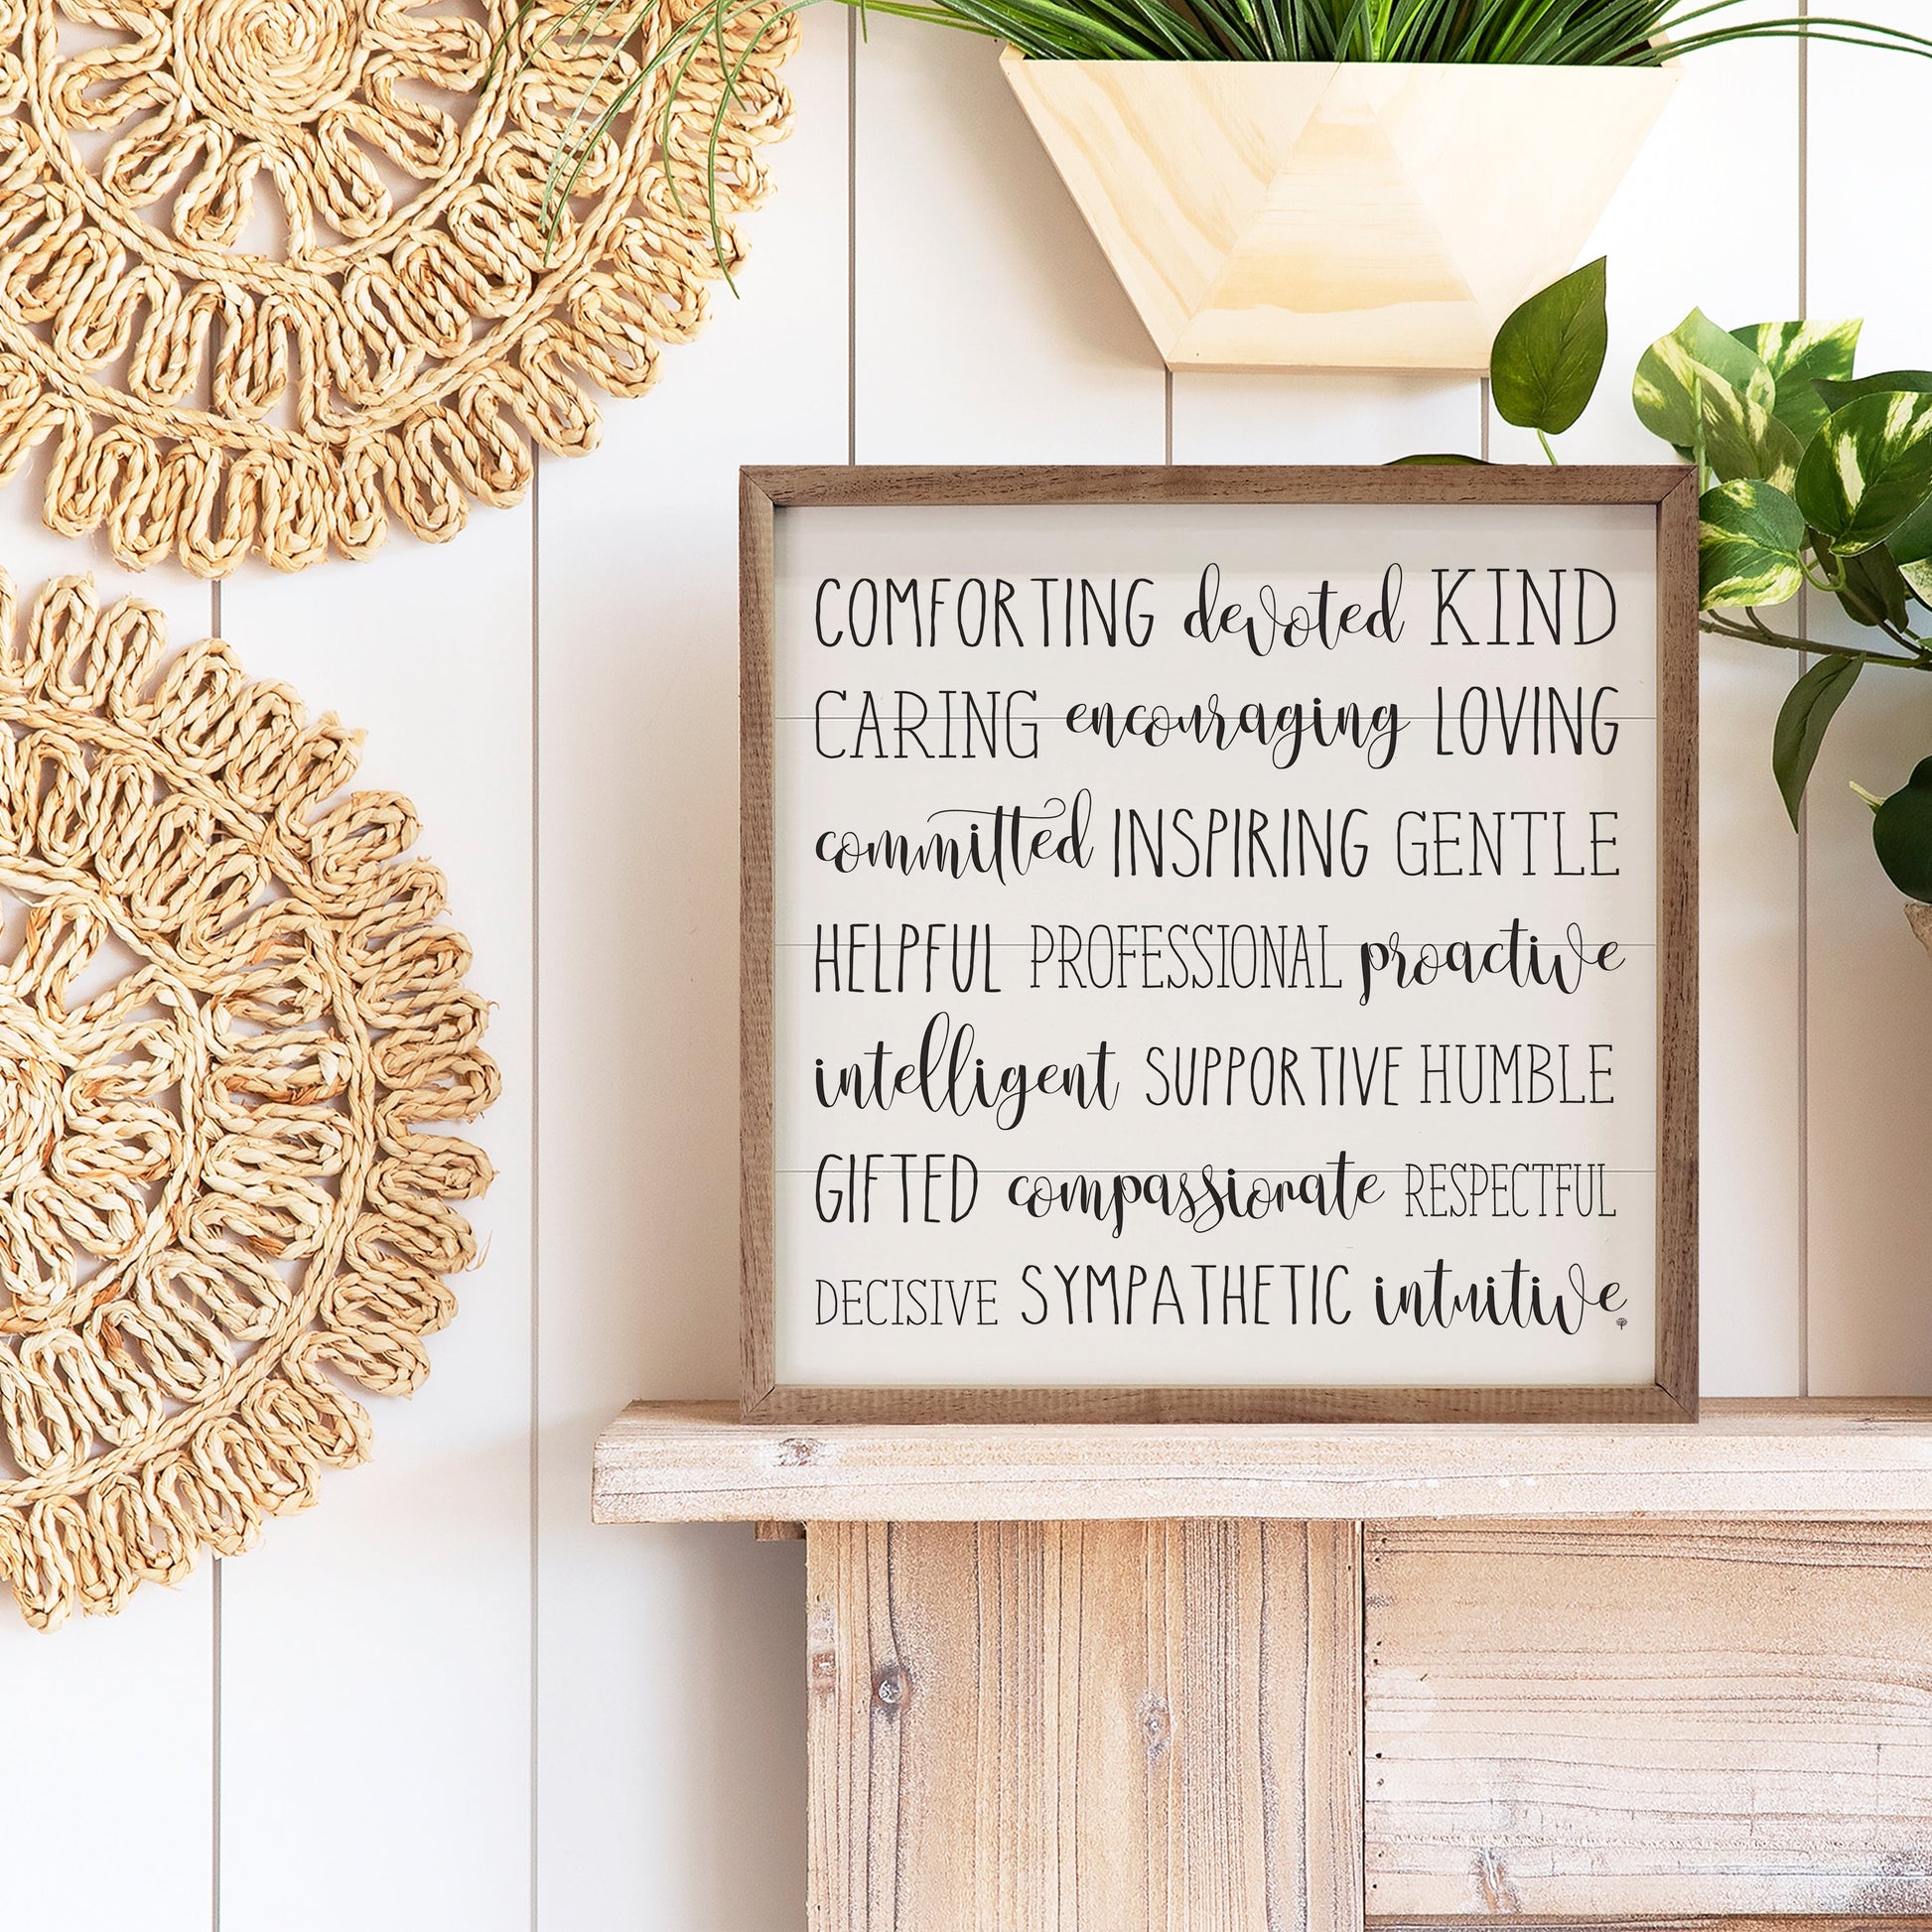 COMFORTING devoted KIND
CARING encouraging LOVING
committed INSPIRING GENTLE
HELPFUL PROFESSIONAL proactive
intelligent SUPPORTIVE HUMBLE
GIFTED compassionate RESPECTFUL
DECISIVE SYMPATHETIC intuitive